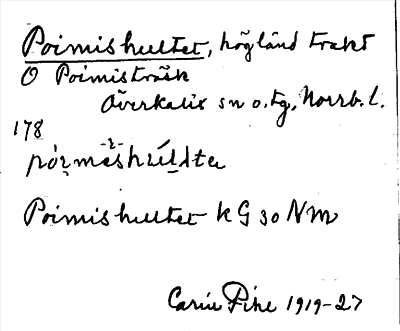 Poimishultet, högländ trakt
O Poimisträsk
Överkalix sn o. tg, Norrb. l.
178
Poimishultet kG 30 NM
Carin Pihl 1919-27